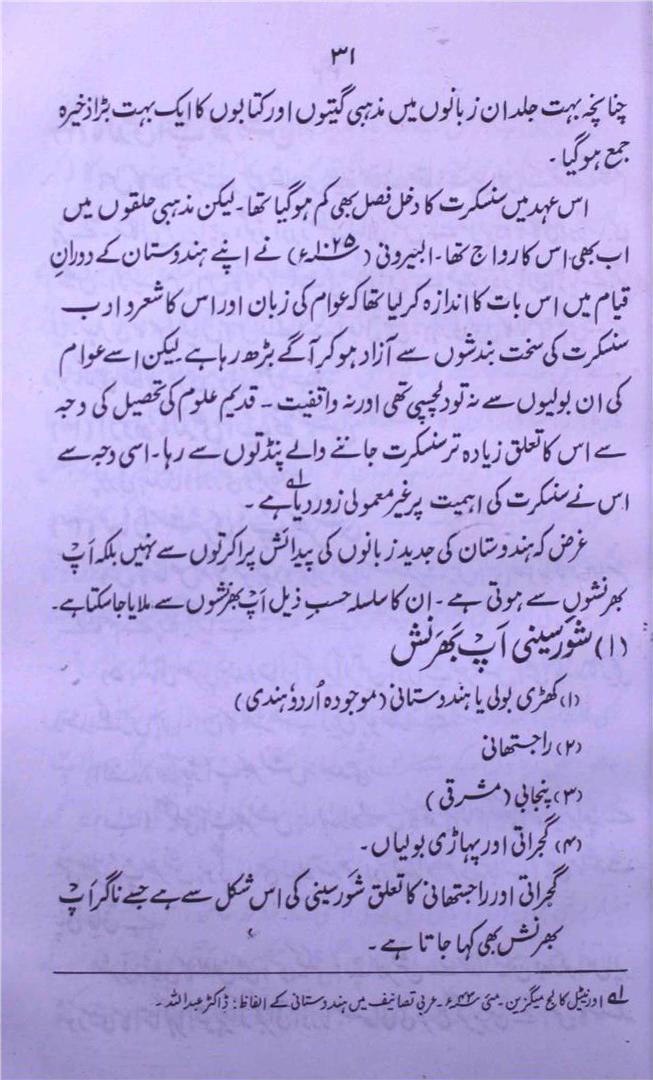 ۳۱
چنانچہ بہت جلد ان زبانوں میں مذہبی گیتوں اور کتابوں کا ایک بہت بڑا ذخیرہ
جمع ہو گیا۔
اس عہد میں سنسکرت کا دخل فصل بھی کم ہو گیا تھا۔ لیکن مذہبی حلقوں میں
اب بھی اس کا رواج تھا۔ البیرونی (۱۰۲۵ء) نے اپنے ہندوستان کے دورانِ
قیام میں اس بات کا اندازہ کر لیا تھا کہ عوام کی زبان اور اس کا شعر و ادب
سنسکرت کی سخت بندشوں سے آزاد ہو کر آگے بڑھ رہا ہے لیکن اسے عوام
کی ان بولیوں سے نہ تو دلچسپی تھی اور نہ واقفیت ۔ قدیم علوم کی تحصیل کی وجہ
سے اس کا تعلق زیادہ تر سنسکرت جاننے والے پنڈتوں سے رہا۔ اسی وجہ سے
اس نے سنسکرت کی اہمیت پر غیر معمولی زور دیا ہے ۔ لہ
غرض کہ ہندوستان کی جدید زبانوں کی پیدائش پراکرتوں سے نہیں بلکہ اَپْ
بھرنشوں سے ہوتی ہے ۔ ان کا سلسلہ حسبِ ذیل اَپْ بھرنشوں سے ملایا جا سکتا ہے۔
(۱) شَورسینی اَپْ بَھرَنش
(۱) کھڑی بولی یا ہندوستانی (موجودہ اُردو ہندی)
(۲) راجتھانی
(۳) پنجابی (مشرقی)
(۴) گجراتی اور پہاڑی بولیاں۔
گجراتی اور راجتھانی کا تعلق شَورسینی کی اس شکل سے ہے جسے ناگر اَپْ
بھرنش بھی کہا جاتا ہے ۔
لہ اورنیٹل کالج میگزین۔ مئی ء۔ عربی تصانیف میں ہندوستانی کے الفاظ: ڈاکٹر عبداللہ ۔